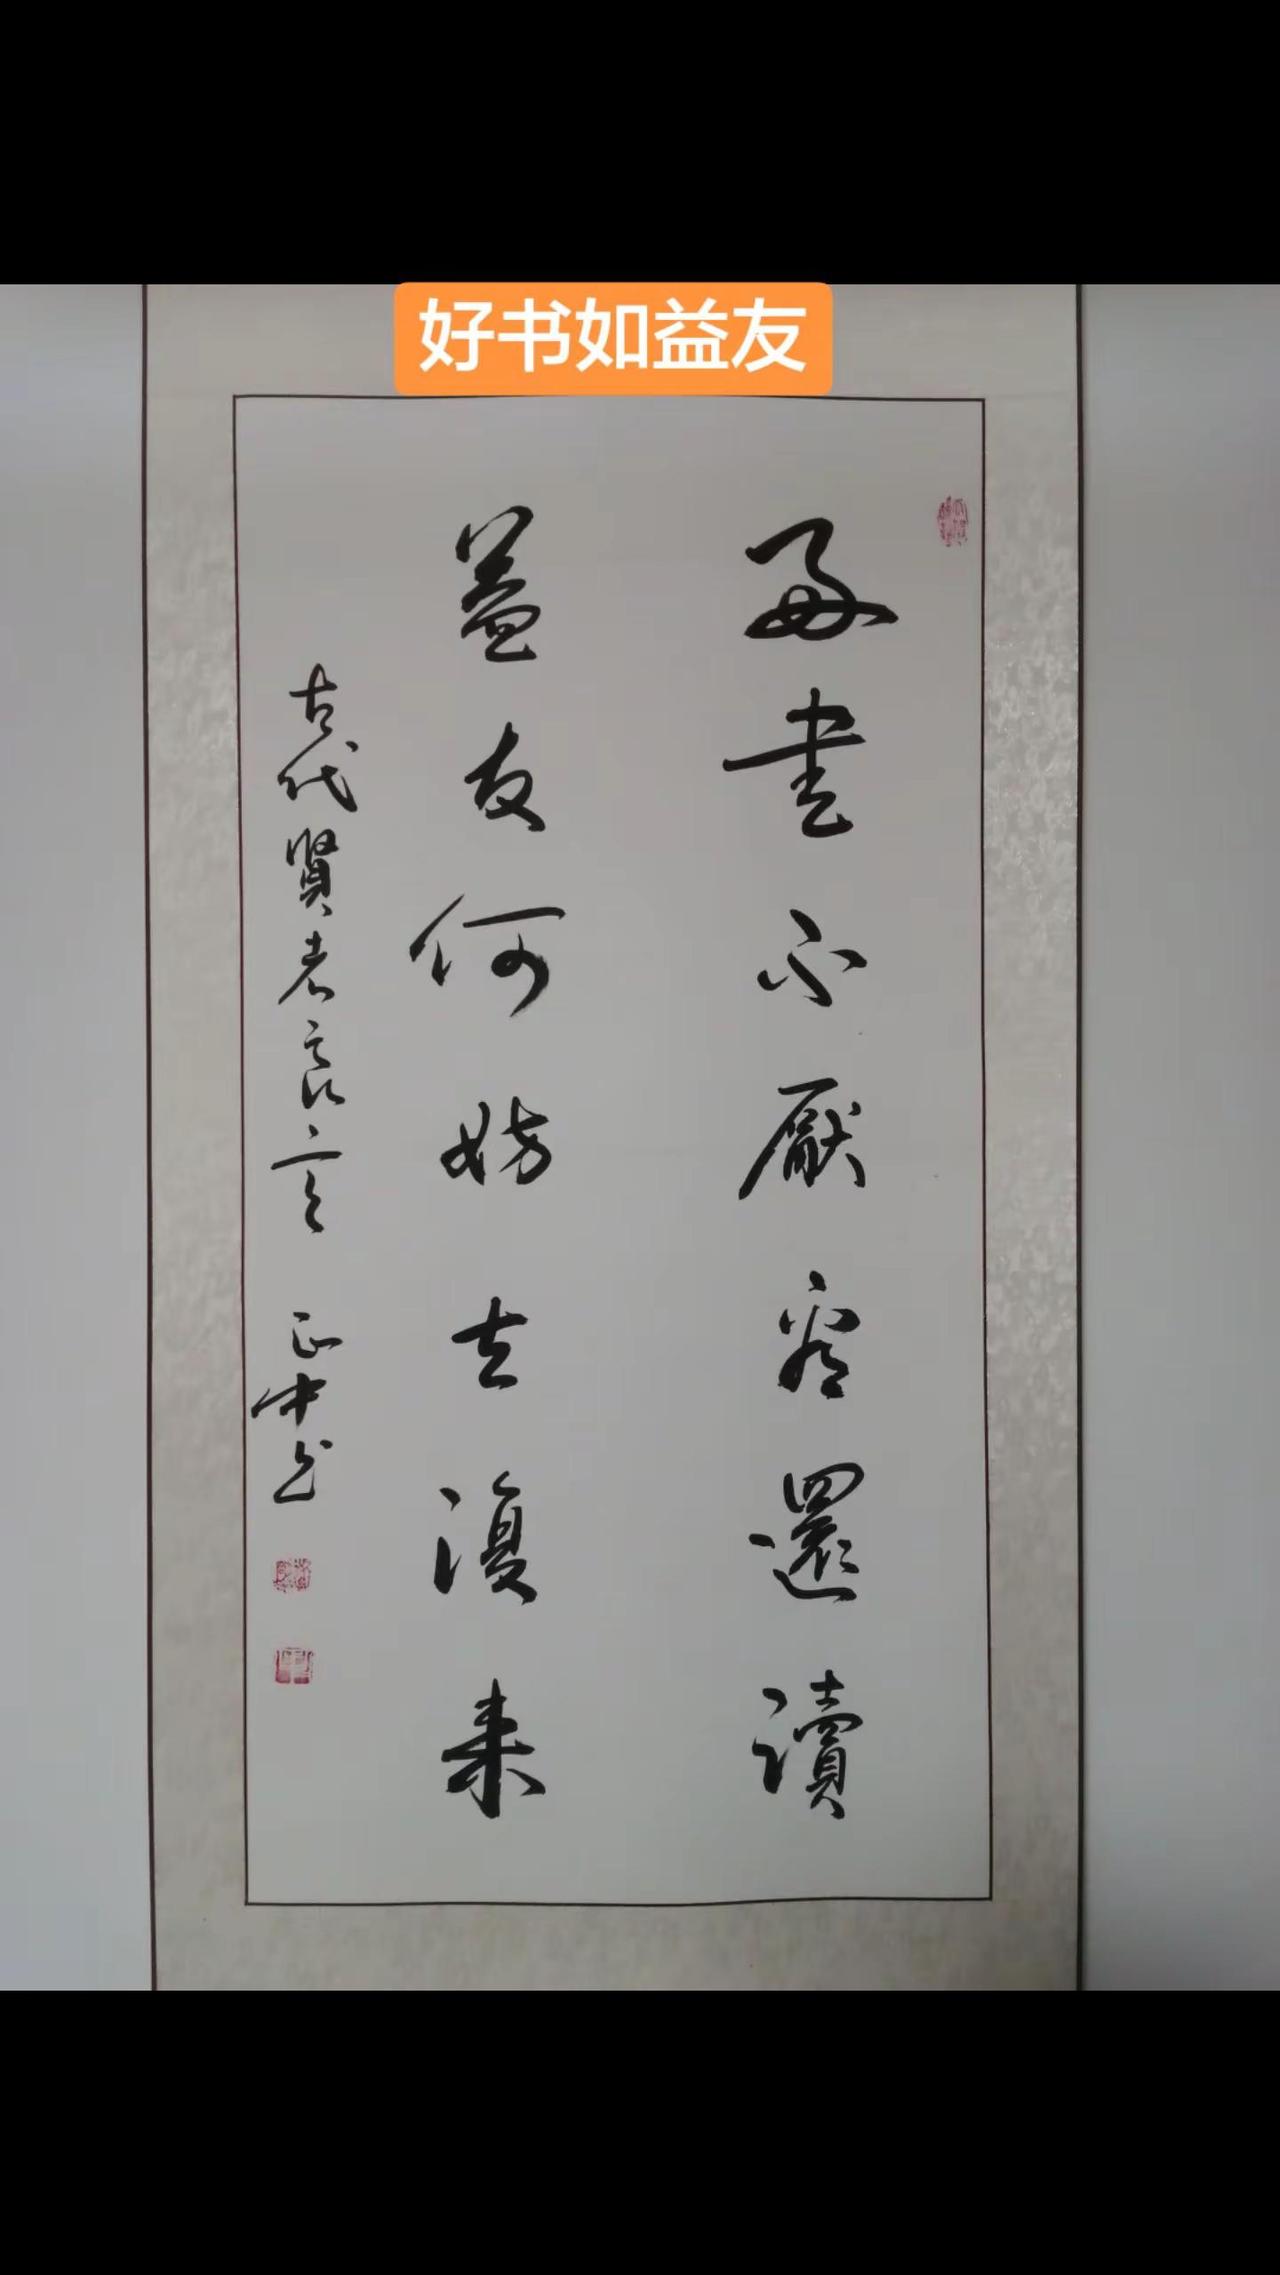 好书如益友
好書不厭看還讀
益友何妨去復来
古代賢者良言 正中书